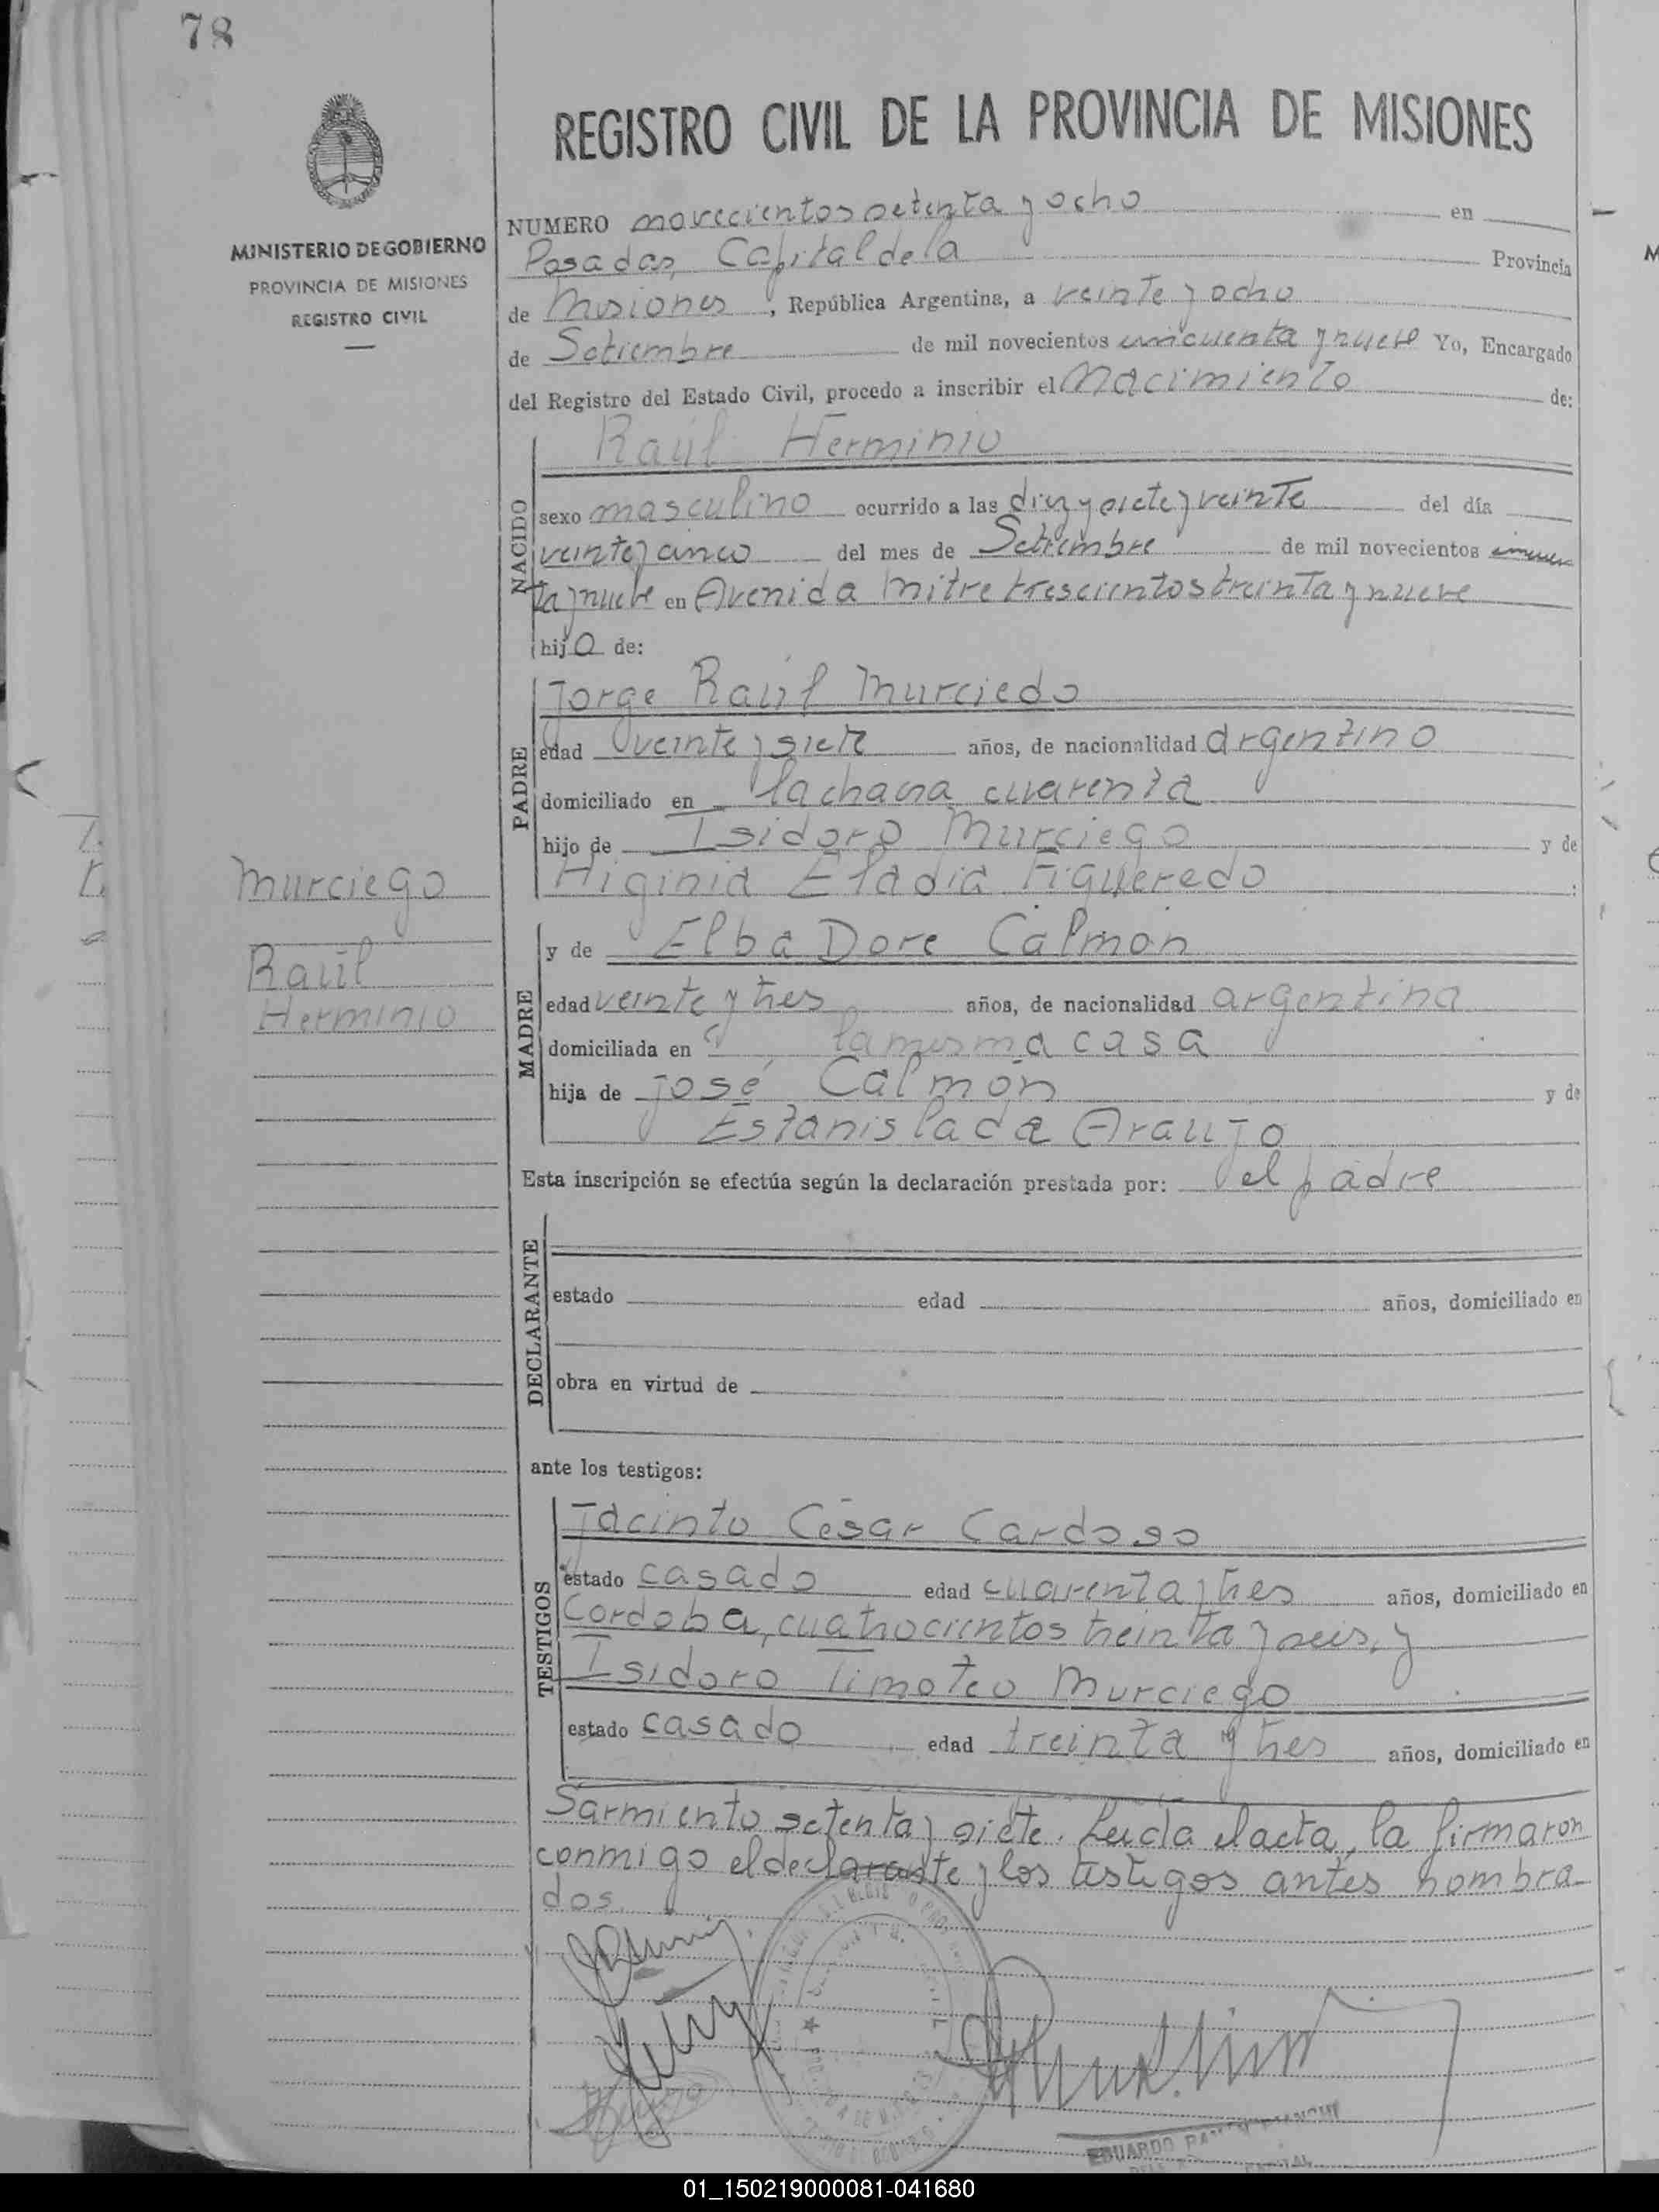 78
REGISTRO CIVIL DE LA PROVINCIA DE MISIONES
MINISTERIO DE GOBIERNO
PROVINCIA DE MISIONES
REGISTRO CIVIL
NUMERO novecientos setenta y ocho en
Posadas, Capital de la Provincia
de Misiones, República Argentina, a veinte y ocho
de Setiembre de mil novecientos cincuenta y nueve Yo, Encargado
del Registro del Estado Civil, procedo a inscribir el Nacimiento de:
NACIDO
Raúl Herminio
sexo masculino ocurrido a las diez y siete y veinte del día
veinte y cinco del mes de Setiembre de mil novecientos cincuen
ta y nueve en Avenida Mitre trescientos treinta y nueve
hijo de:
PADRE
Jorge Raúl Murciedo
edad veinte y siete años, de nacionalidad argentino
domiciliado en la chacra cuarenta
hijo de Isidoro Murciego y de
Higinia Eladia Figueredo :
Murciego
Raúl
Herminio
MADRE
y de Elba Dore Calmon
edad veinte y tres años, de nacionalidad argentina
domiciliada en la misma casa
hija de José Calmón y de
Estanislada Araujo
Esta inscripción se efectúa según la declaración prestada por: el padre
DECLARANTE
estado edad años, domiciliado en
obra en virtud de
ante los testigos:
TESTIGOS
Jacinto César Cardoso
estado casado edad cuarenta y tres años, domiciliado en
Cordoba, cuatrocientos treinta y seis, y
Isidoro Timoteo Murciego
estado casado edad treinta y tres años, domiciliado en
Sarmiento setenta y siete. Leída el acta, la firmaron
conmigo el declarante y los testigos antes nombra-
dos.
EDUARDO RAMON BIANCHI
CAPITAL
01_150219000081-041680